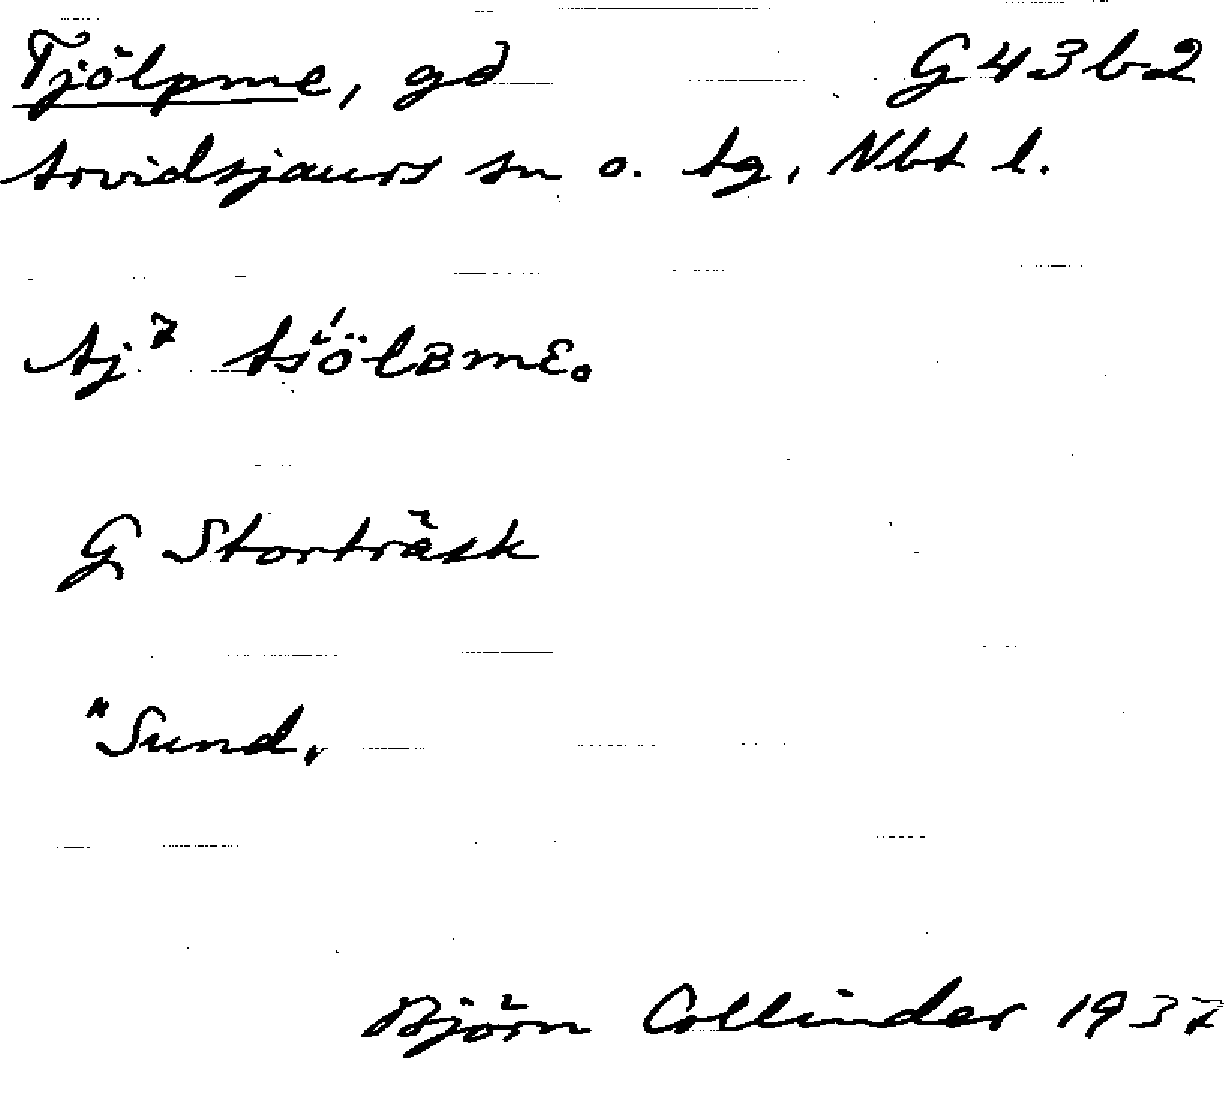 Tjölpme, gd G43b2
Arvidsjaurs sn o. tg, Nbt l.
Aj⁷ tśölʙmᴇ.
G Storträsk
"Sund„
Björn Collinder 1937